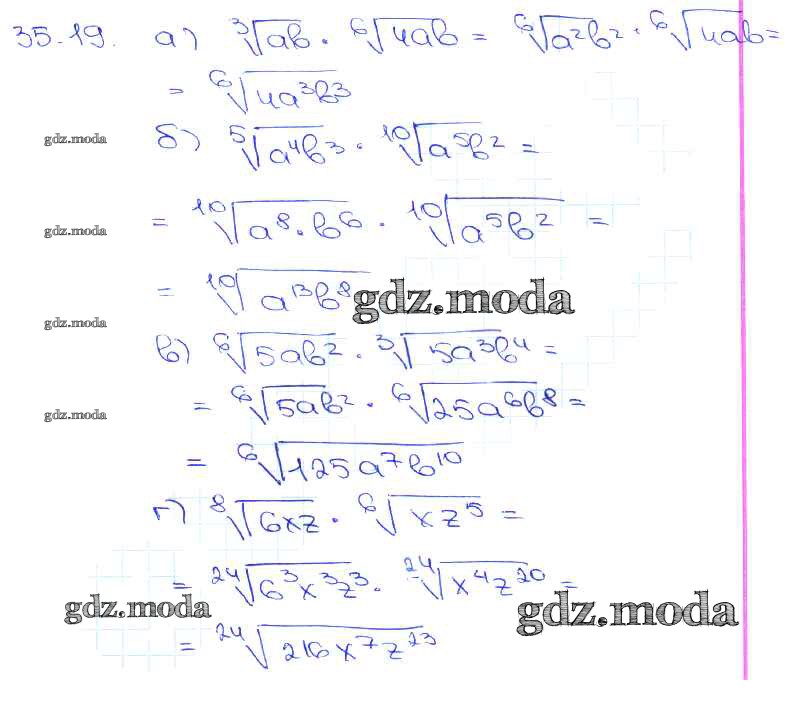 35.19. а) ∛ab · ⁶√4ab = ⁶√a²b² · ⁶√4ab =
= ⁶√4a³b³
gdz.moda
б) ⁵√a⁴b³ · ¹⁰√a⁵b² =
gdz.moda
= ¹⁰√a⁸·b⁶ · ¹⁰√a⁵b² =
= ¹⁰√a¹³b⁸
gdz.moda
gdz.moda
в) ⁶√5ab² · ∛5a³b⁴ =
gdz.moda
= ⁶√5ab² · ⁶√25a⁶b⁸ =
= ⁶√125a⁷b¹⁰
г) ⁸√6xz · ⁶√xz⁵ =
= ²⁴√6³x³z³ · ²⁴√x⁴z²⁰ =
gdz.moda
gdz.moda
= ²⁴√216x⁷z²³